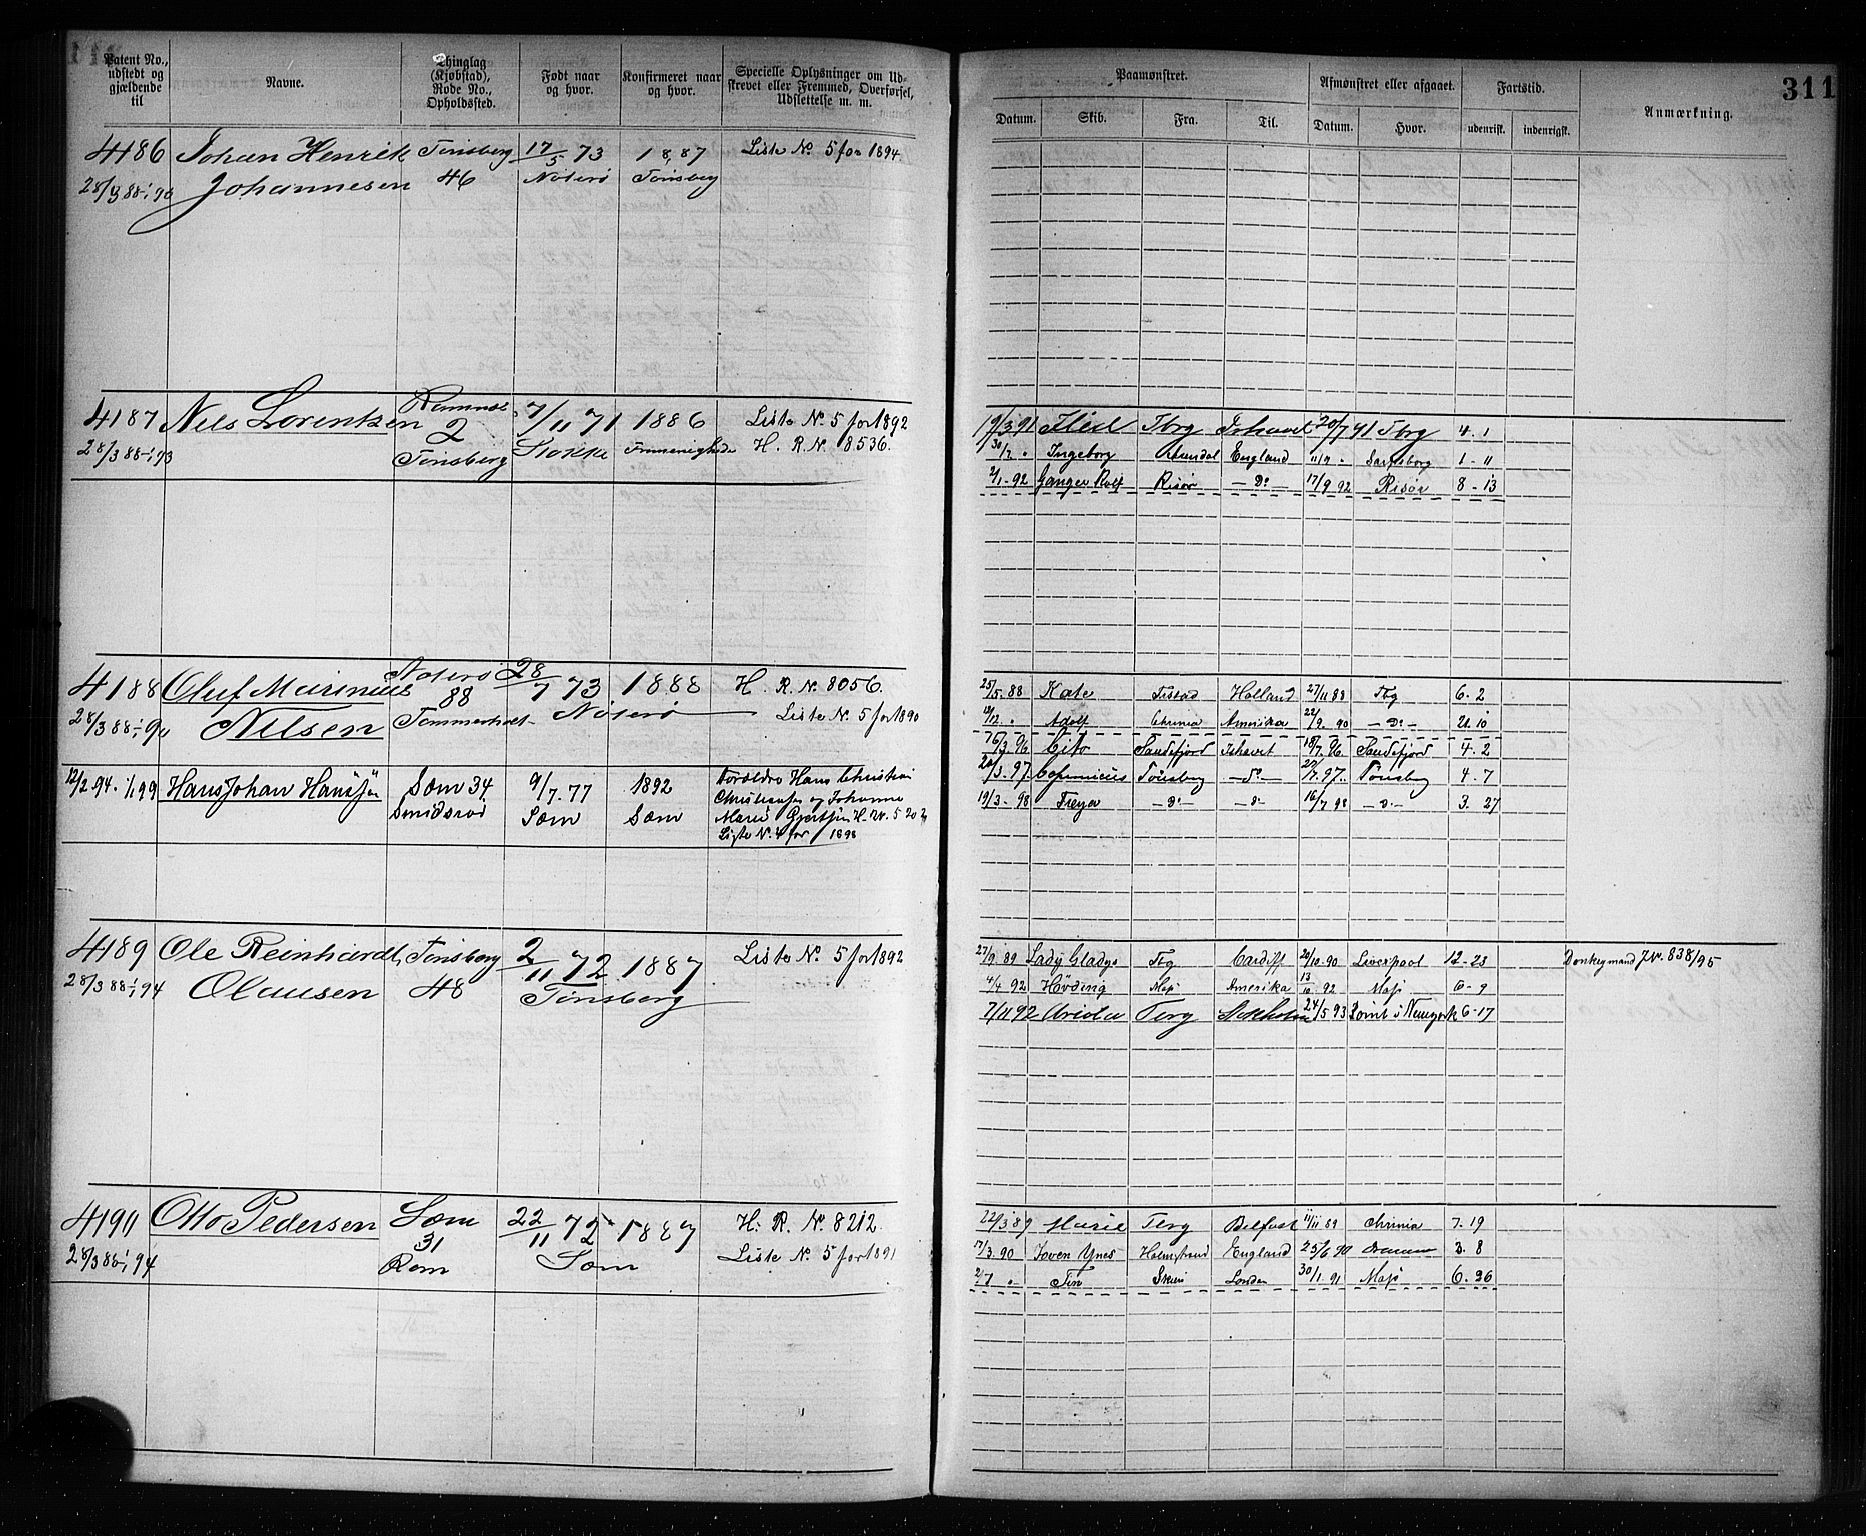 Patent No., udstedt og gjældende til
Navne.
Thinglag (Kjøbstad), Rode No., Opholdssted.
Født naar og hvor.
Konfirmeret naar og hvor.
Specielle Oplysninger om Udskrevet eller Fremmed, Overførsel, Udslettelse m. m.
Paamønstret.
Afmønstret eller afgaaet.
Fartstid.
Anmærkning.
311
Datum. Skib. Fra. Til. Datum. Hvor. udenrigst. indenrigst.
4186 Johan Henrik Tønsberg 17/5 73 1887 Liste No. 5 for 1894
28/3 88 Johannesen 46 Nøterø Tønsberg
4187 Nils Lorentzen 2 7/11 71 1886 Liste No. 5 for 1892
28/3 88-1/93 Tønsberg Stokke H. R. No. 8536.
19/3 91 Tbrg 20/7 91 Tbrg 4. 1
30/7 " Ingeborg England 11/9 - Sarpsborg 1 - 11
2/1-92 Ganger Rolf Risør - Do - 17/9 92 Risør 8 - 13
4188 Oluf Marinius Nøterø 88 28/7 73 1888 H. R. No. 8056.
28/3 88 Nilsen Nøterø Liste No. 5 for 1890
25/5 88 Kate Holland 27/11 88 Tbg 6. 2
12/12 " Adolf Chrinia Amerika 22/9. 90 - Do - 21. 10
16/3 96 Cito Sandefjord Ishavet 18/7 96 Sandefjord 4. 2
20/3. 97. Copernicus Tønsberg - do - 97. Tønsberg 4. 7
19/3 - 98 Freya - Do - - Do - 16/7 98 - Do - 3. 27
12/2 94. 1/1 99 Hans Johan Hansen Sæm 34 9/7. 77 1892 Forældre Hans Christian
Smidsrød Sæm Sæm Christensen og Johanne
Marie
Liste No. 4 for 1898
4189 Ole Reinhardt Tønsberg 2/11 72 1887 Liste No. 5 for 1892
28/3 88-1/94 Olausen 48 Tønsberg
27/9 89 Lady Gladys Tbg Cardiff 20/10-90 Liverpool 12-23 Donkeymand J No. 838/95
4/4 92 Høvding Amerika 13/10 92 6 - 9
7/11 92 Tbrg 24/5 93 Rømt i Newyork 6-17
4190 Otto Pedersen Sæm 22/11 72 1887 H. R. No. 8212.
28/3 88-1/94 31 Sæm Liste No. 5 for 1891
Røm
22/3 89 Marie Tbrg Belfast 11/11 89 Chrinia 7. 19
17/3. 90 Holmestrand England 25/6 90 Drammen 3. 8
2/7 " London 30/1 91 6. 26